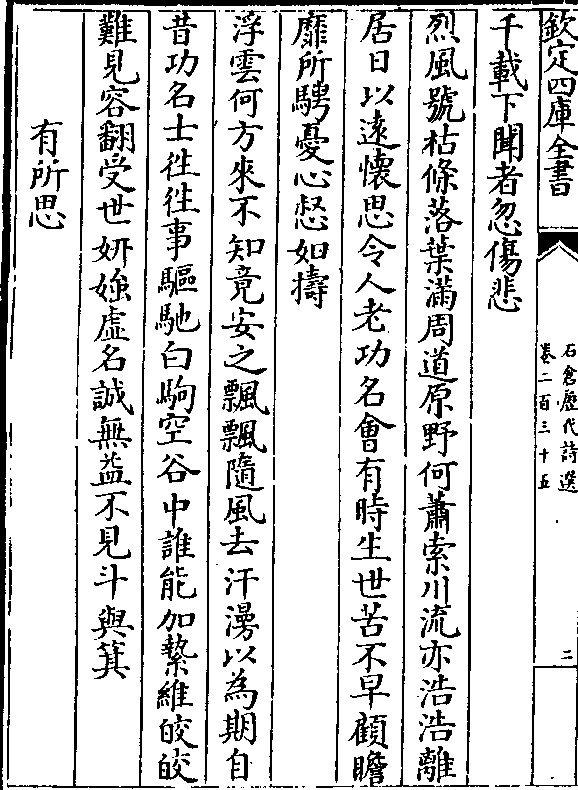 欽定四庫全書
石倉歷代詩選
卷二百三十五
二
千載下聞者忽傷悲
烈風號枯條落葉滿周道原野何蕭索川流亦浩浩離
居日以遠懷思令人老功名會有時生世苦不早顧瞻
靡所騁憂心惄如擣
浮雲何方來不知竟安之飄飄隨風去汗漫以為期自
昔功名士往往事驅馳白駒空谷中誰能加縶維皎皎
難見容翻受世妍媸虛名誠無益不見斗與箕
有所思